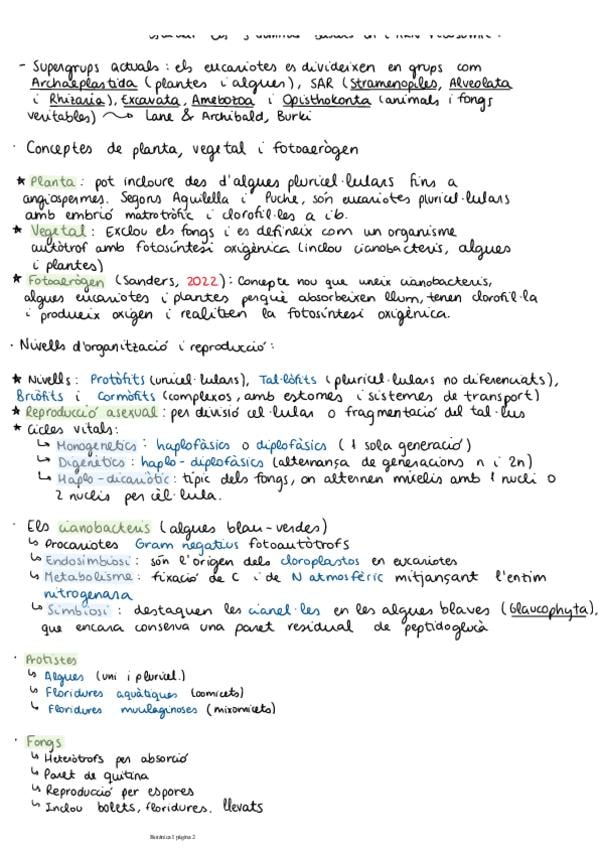 - Supergrups actuals: els eucariotes es divideixen en grups com
Archaeplastida (plantes i algues), SAR (Stramenopiles, Alveolata
i Rhizaria), Excavata, Amebozoa i Opisthokonta (animals i fongs
veritables) ~> Lane & Archibald, Burki
· Conceptes de planta, vegetal i fotoaerògen
★ Planta: pot incloure des d'algues pluricel·lulars fins a
angiospermes. Segons Aquilella i Puche, són eucariotes pluricel·lulars
amb embrió matrotròfic i clorofil·les a i b.
★ Vegetal: Exclou els fongs i es defineix com un organisme
autòtrof amb fotosíntesi oxigènica (inclou cianobacteris, algues
i plantes)
★ Fotoaerògen (Sanders, 2022): Concepte nou que uneix cianobacteris,
algues eucariotes i plantes perquè absorbeixen llum, tenen clorofil·la
i produeix oxigen i realitzen la fotosíntesi oxigènica.
· Nivells d'organització i reproducció:
★ Nivells: Protòfits (unicel·lulars), Tal·lòfits (pluricel·lulars no diferenciats),
Briòfits i Cormòfits (complexos, amb estomes i sistemes de transport)
★ Reproducció asexual: per divisió cel·lular o fragmentació del tal·lus
★ Cicles vitals:
↳ Monogenètics: haplofàsics o diplofàsics (1 sola generació)
↳ Digenètics: haplo-diplofàsics (alternança de generacions n i 2n)
↳ Haplo-dicariòtic: típic dels fongs, on alternen micelis amb 1 nucli o
2 nuclis per cèl·lula.
· Els cianobacteris (algues blau-verdes)
↳ Procariotes Gram negatius fotoautòtrofs
↳ Endosimbiosi: són l'origen dels cloroplastos en eucariotes
↳ Metabolisme: fixació de C i de N atmosfèric mitjançant l'entim
nitrogenasa
↳ Simbiosi: destaquen les cianel·les en les algues blaves (Glaucophyta),
que encara conserva una paret residual de peptidoglucà
· Protistes
↳ Algues (uni i pluricel.)
↳ Floridures aquàtiques (oomicets)
↳ Floridures mucilaginoses (mixomicets)
· Fongs
↳ Heteròtrofs per absorció
↳ Paret de quitina
↳ Reproducció per espores
↳ Inclou bolets, floridures, llevats
Botànica I página 2